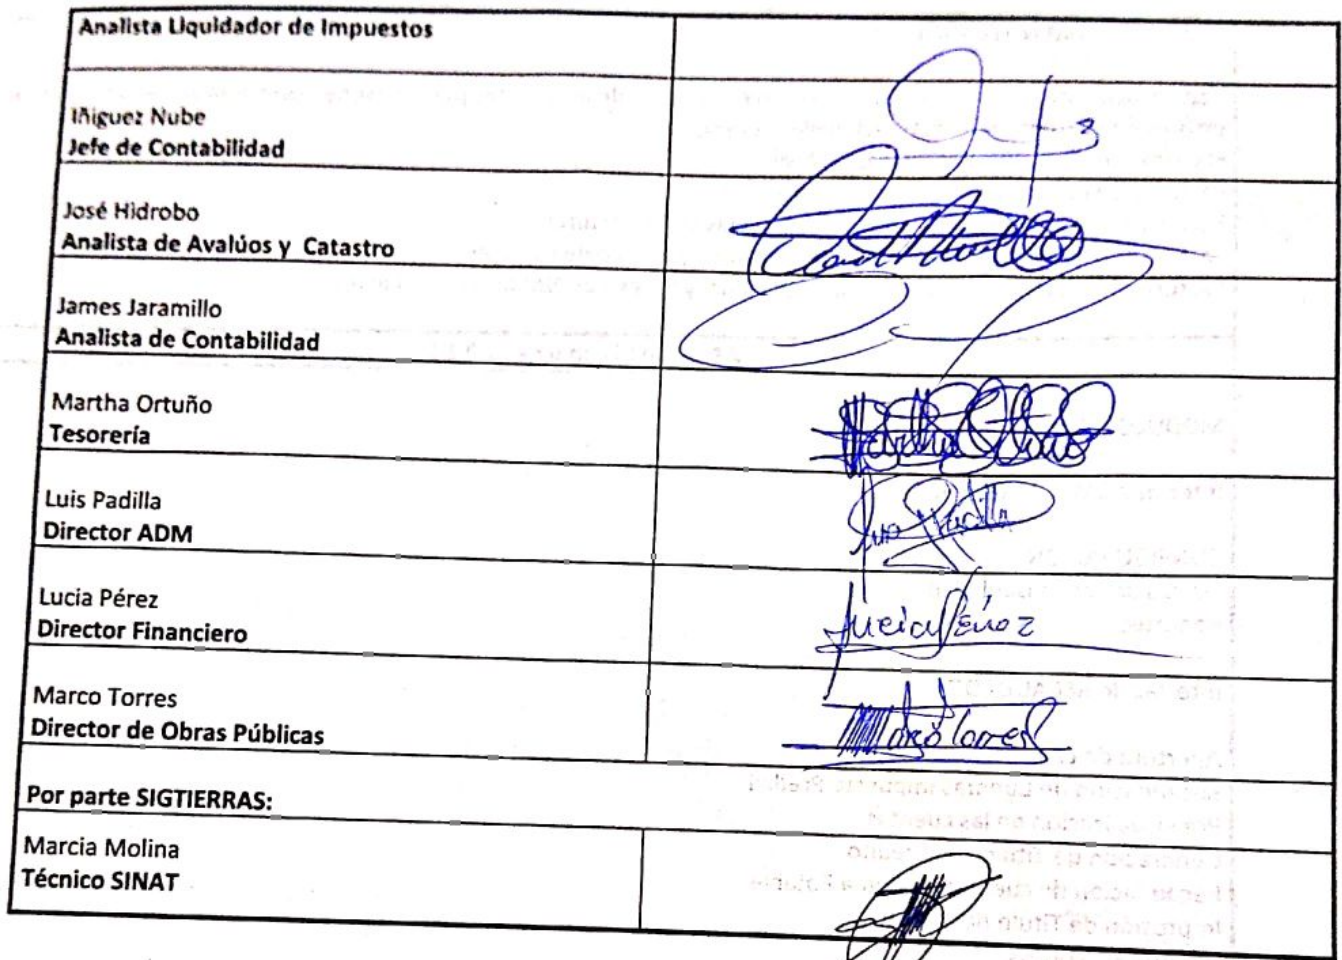 Analista Liquidador de Impuestos
Iñiguez Nube
Jefe de Contabilidad
José Hidrobo
Analista de Avalúos y Catastro
James Jaramillo
Analista de Contabilidad
Martha Ortuño
Tesorería
Martha Ortuño
Luis Padilla
Director ADM
Luis Padilla
Lucia Pérez
Director Financiero
Lucia Pérez
Marco Torres
Director de Obras Públicas
Marco Torres
Por parte SIGTIERRAS:
Marcia Molina
Técnico SINAT